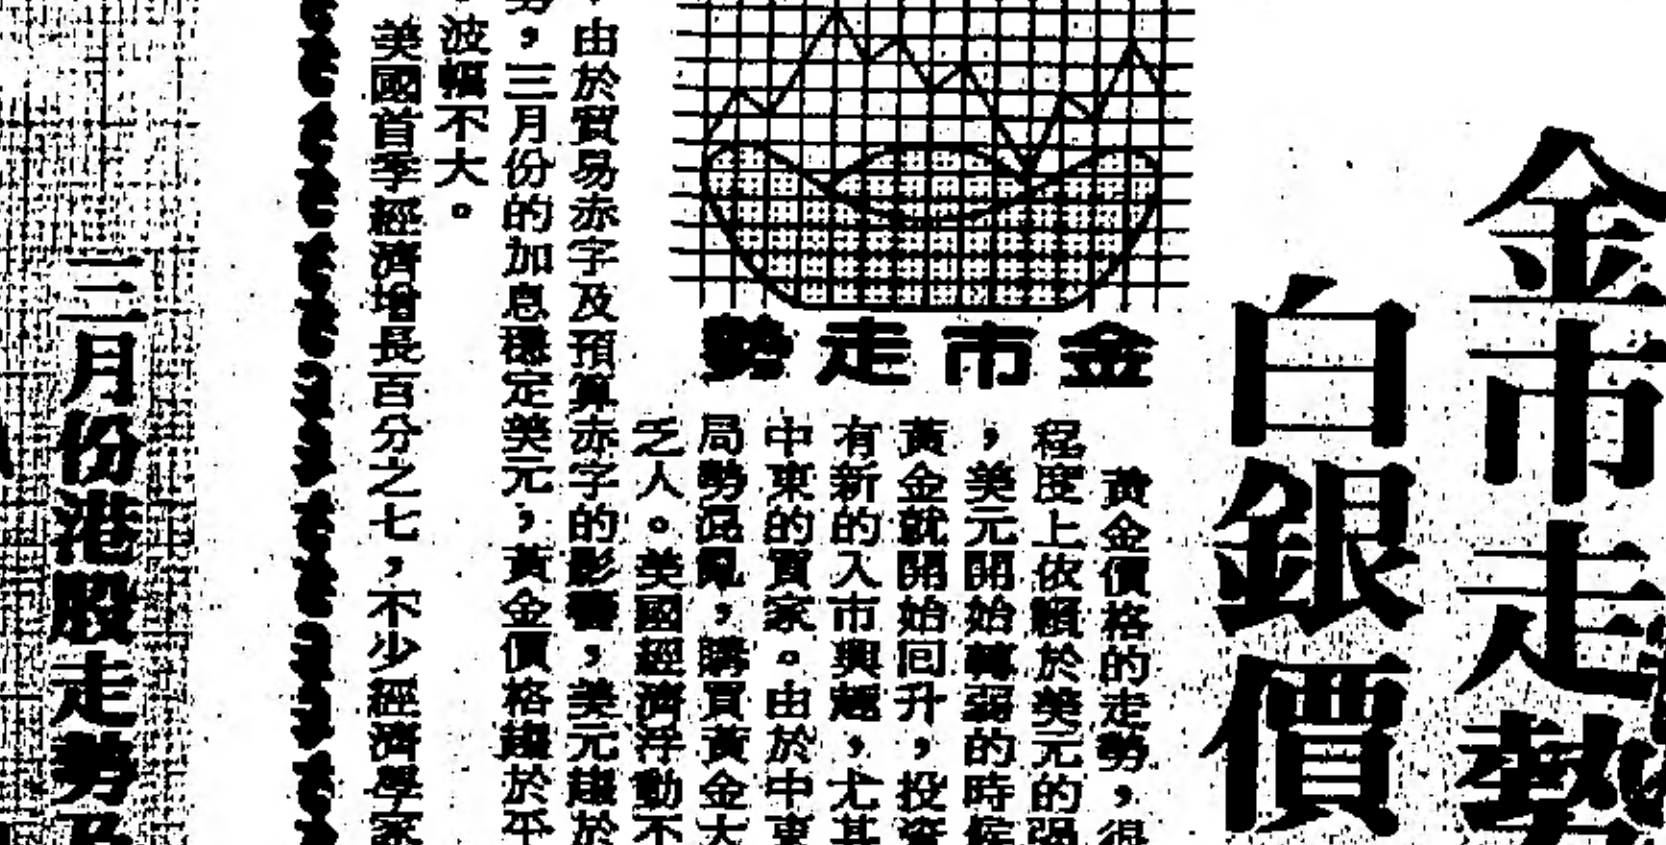 金市走勢
白銀價
金市走勢
黃金價格的走勢，很
程度上依賴於美元的強
，美元開始轉弱的時候
黃金就開始回升，投資
有新的入市興趣，尤其
中東的買家。由於中東
局勢混亂，購買黃金大
乏人。美國經濟浮動不
，由於貿易赤字及預算赤字的影響，美元趨於
，三月份的加息穩定美元，黃金價格趨於平
波幅不大。
美國首季經濟增長百分之七，不少經濟學家
三月份港股走勢及